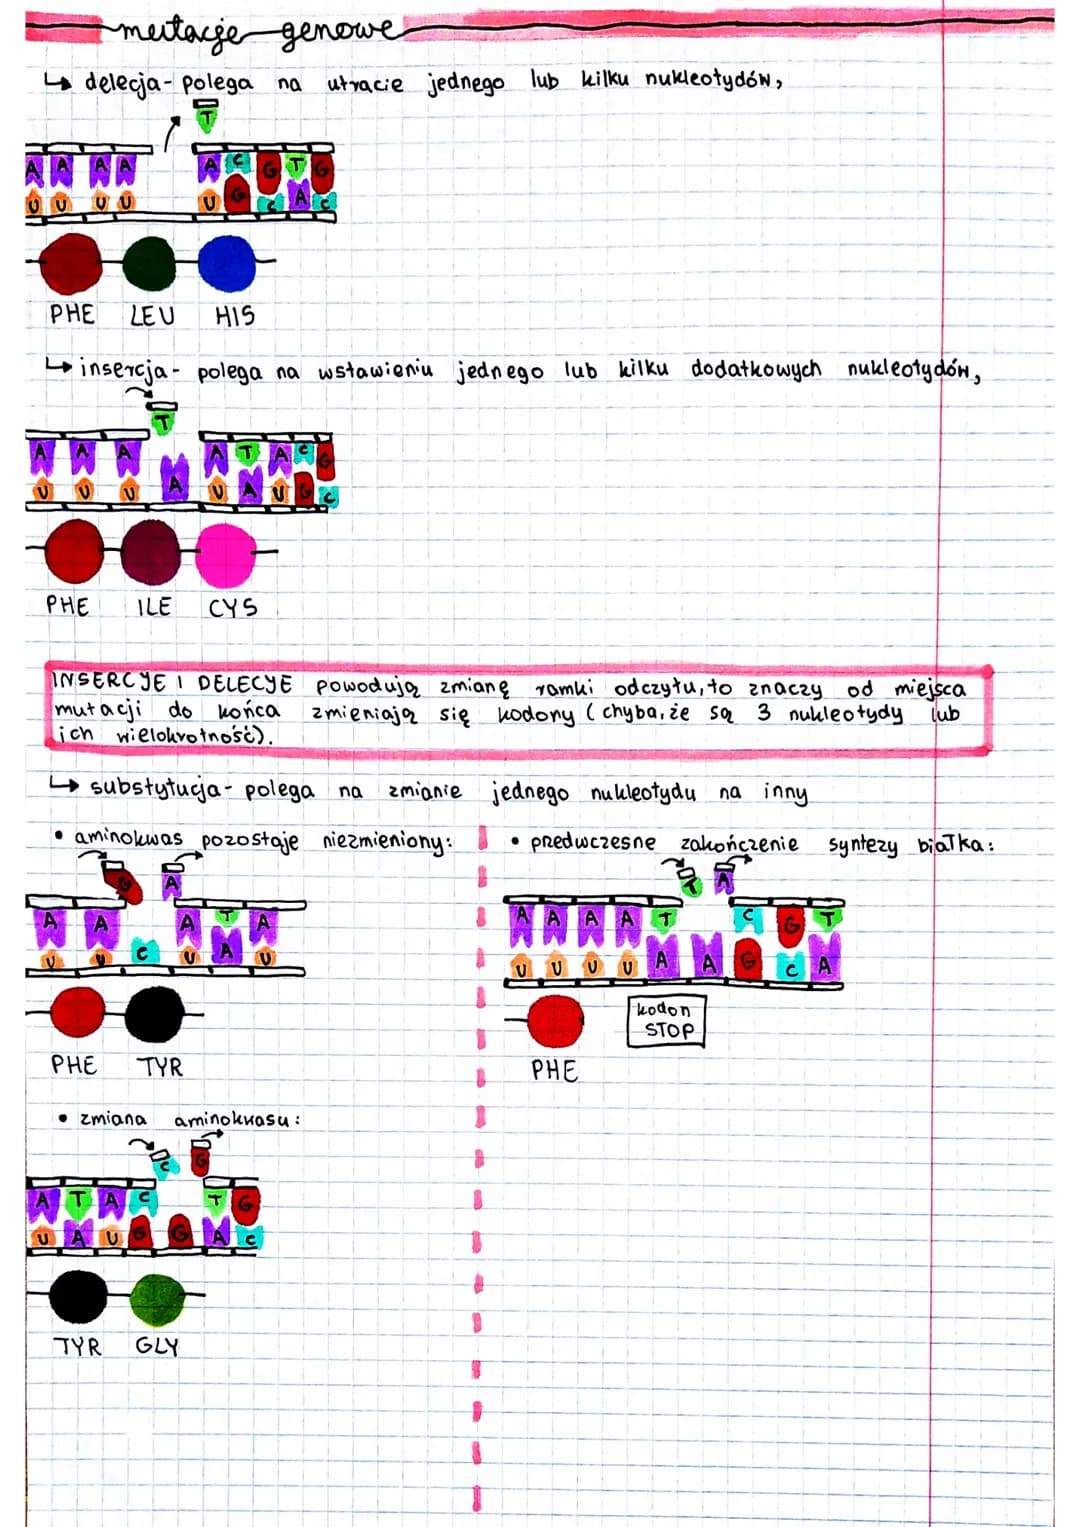 mutacje genowe
↳ delecja - polega na utracie jednego lub kilku nukleotydów,
T
A A A A A C G T G
U U U U U G C A C
PHE LEU HIS
↳ insercja - polega na wstawieniu jednego lub kilku dodatkowych nukleotydów,
T
A A A A T A C G
U U U A U A U G C
PHE ILE CYS
INSERCJE I DELECJE powodują zmianę ramki odczytu, to znaczy od miejsca
mutacji do końca zmieniają się kodony (chyba, że są 3 nukleotydy lub
ich wielokrotność).
↳ substytucja - polega na zmianie jednego nukleotydu na inny
• aminokwas pozostaje niezmieniony:
G A
A A A T A
U U C U A U
PHE TYR
• zmiana aminokwasu:
C G
A T A C T G
U A U G G A C
TYR GLY
• predwczesne zakończenie syntezy białka:
T A
A A A A T C G T
U U U U A A G C A
kodon
STOP
PHE